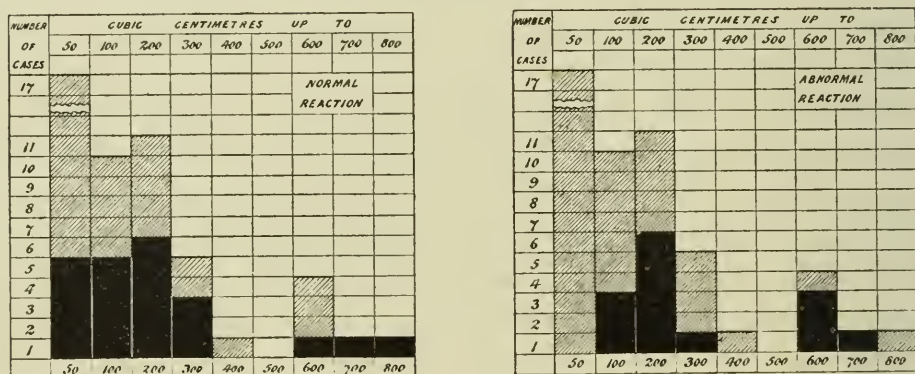 NUMBER OF CASES
CUBIC CENTIMETRES UP TO
50 100 200 300 400 500 600 700 800
17
NORMAL
REACTION
11
10
9
8
7
6
5
4
3
2
1
50 100 200 300 400 500 600 700 800
NUMBER OF CASES
CUBIC CENTIMETRES UP TO
50 100 200 300 400 500 600 700 800
17
ABNORMAL
REACTION
11
10
9
8
7
6
5
4
3
2
1
50 100 200 300 400 500 600 700 800